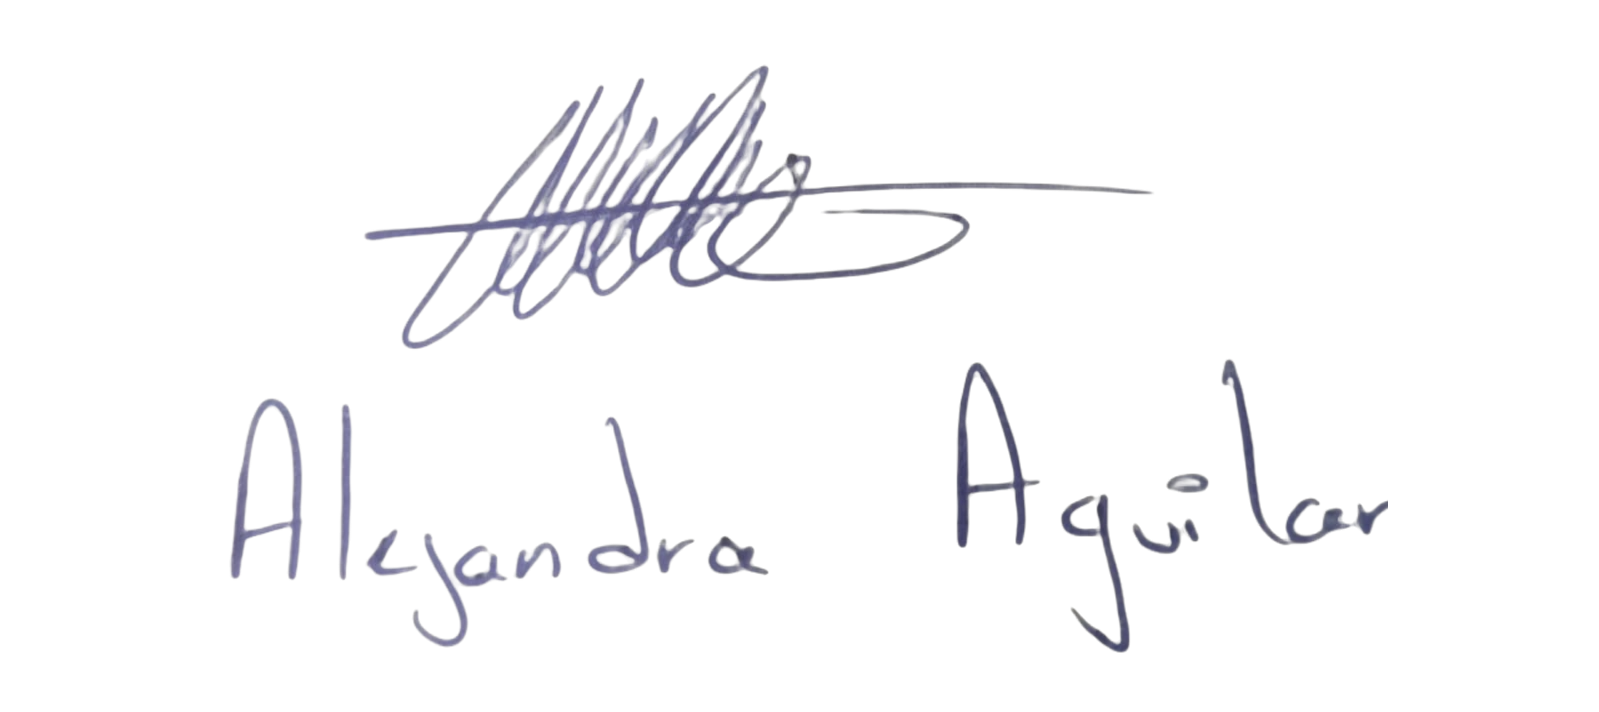 Alejandra Aguilar